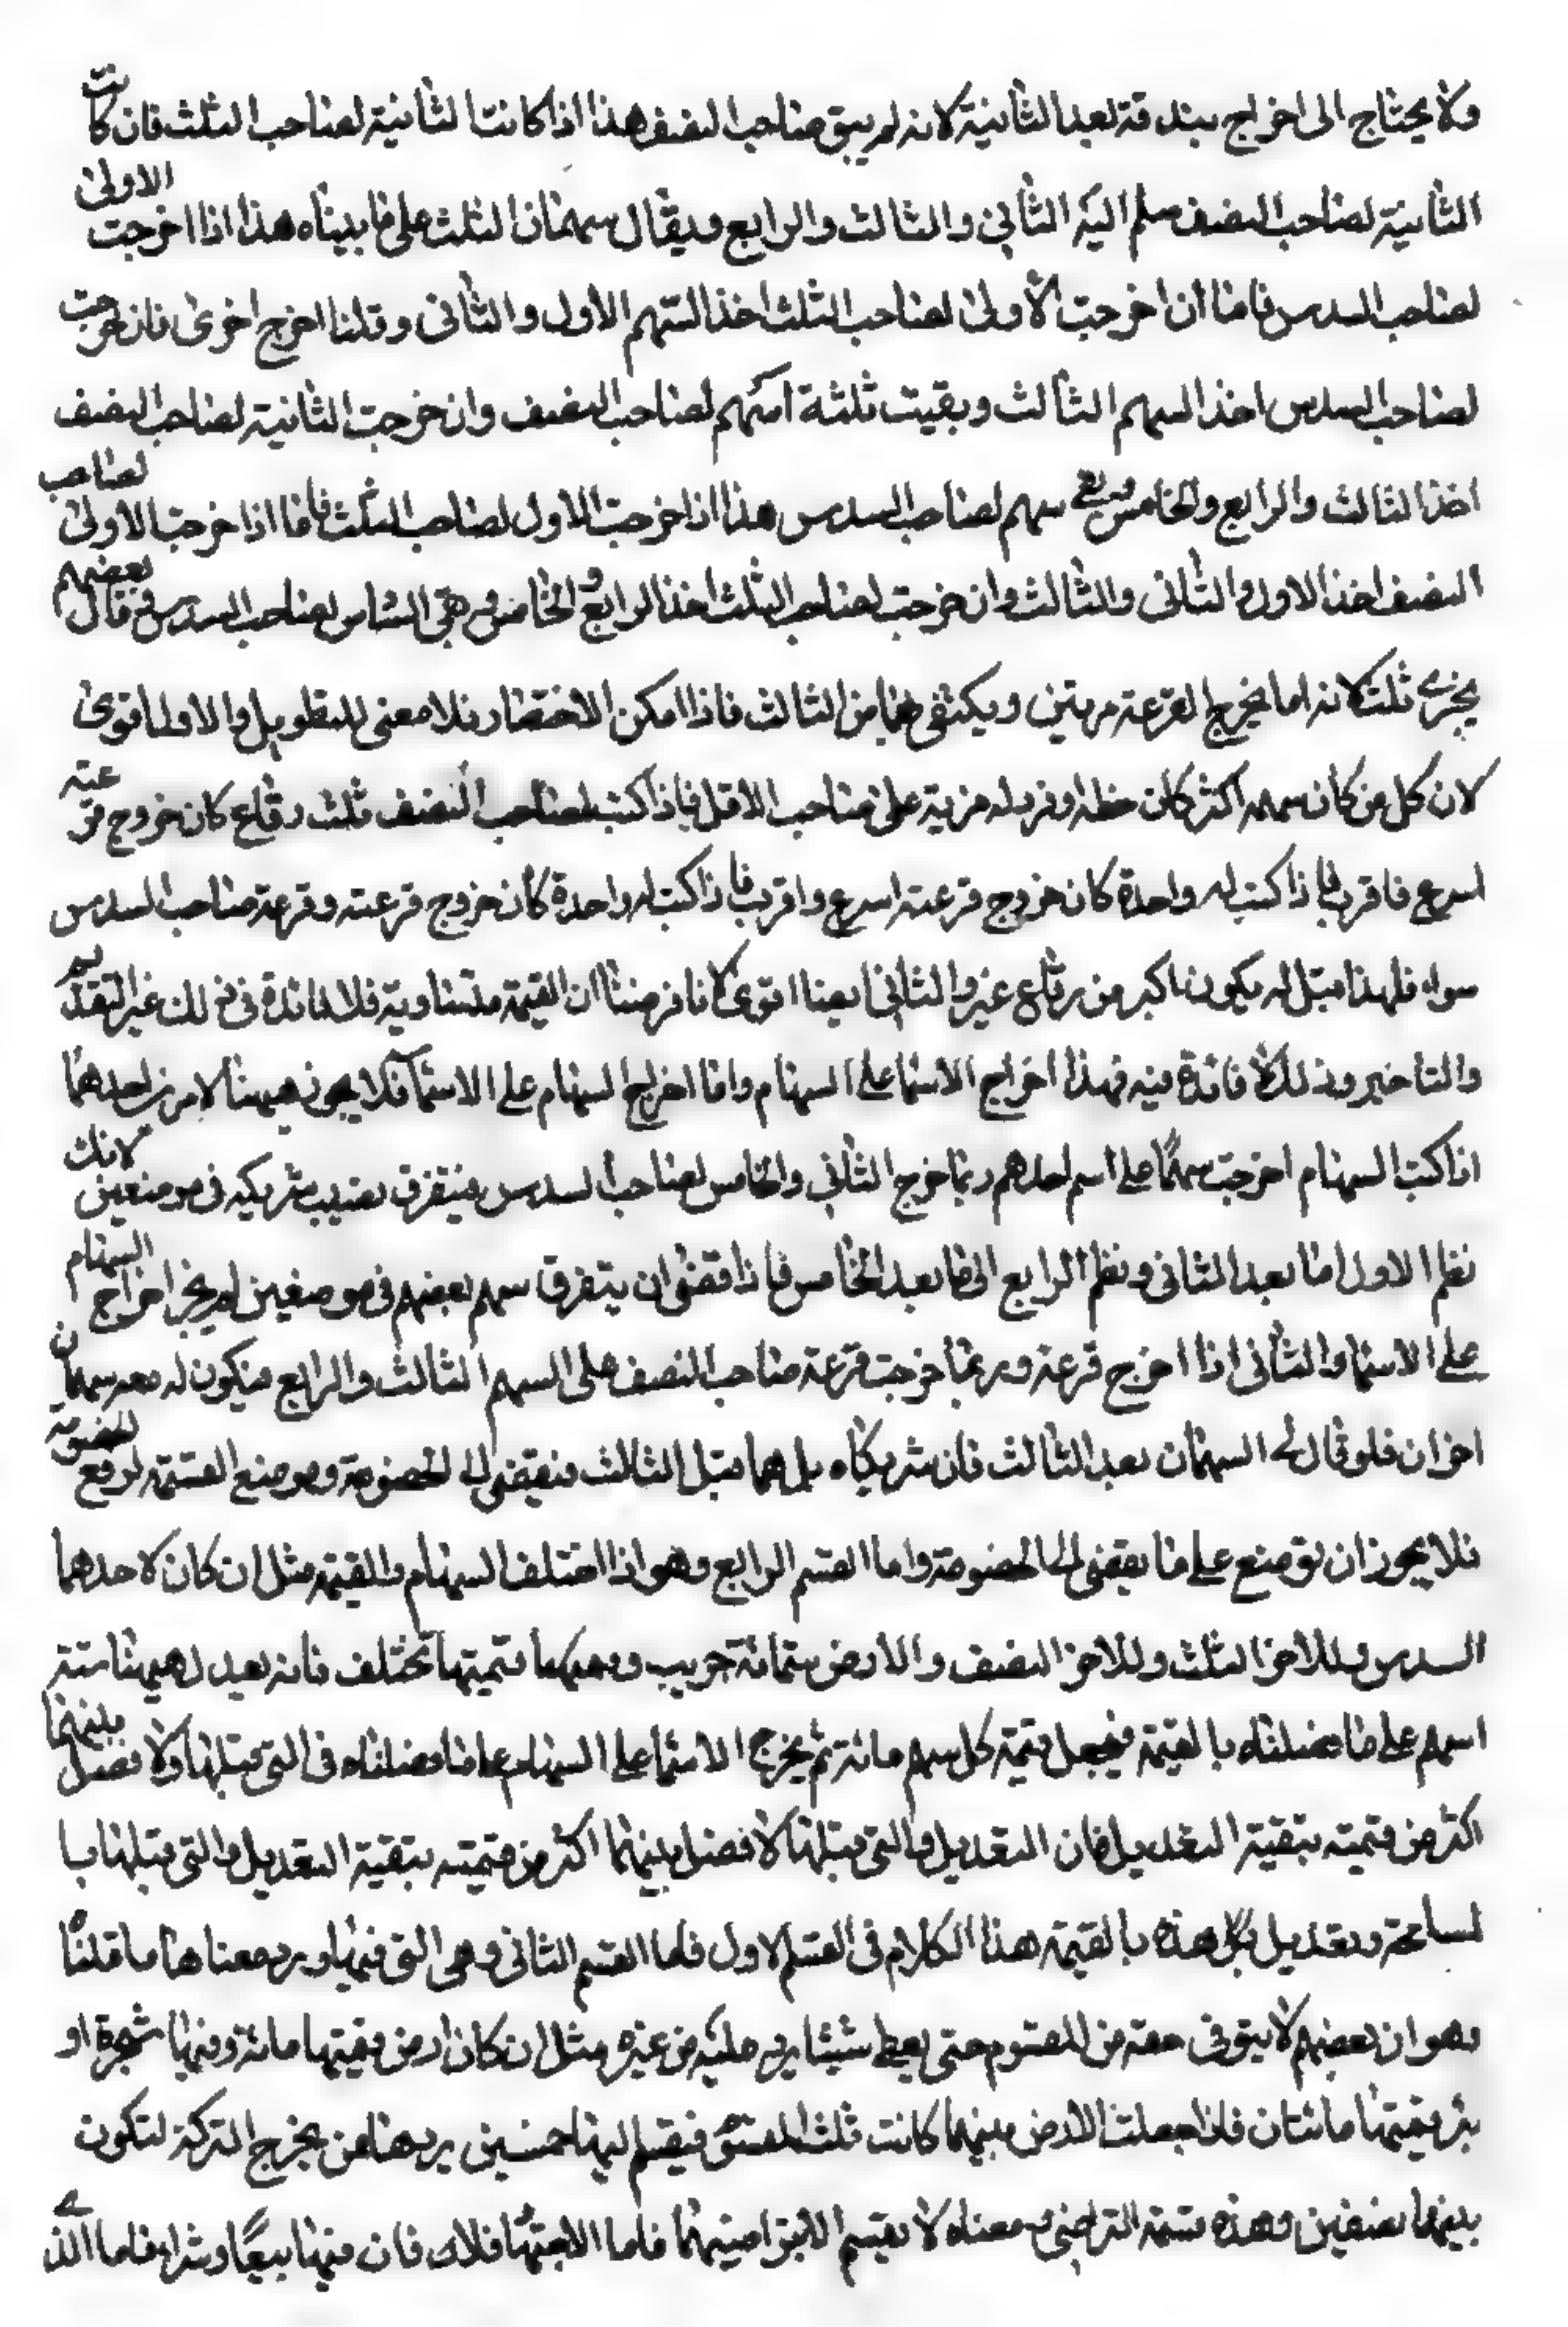 ولا يحتاج الى اخراج بندقة بعد الثانية لانه لم يبق صاحب النصف هذا اذا كانت الثانية لصاحب الثلث فان كانت
الثانية لصاحب النصف سلم اليه الثاني والثالث والرابع ويقال سهمان الثلث على ما بيناه هذا اذا اخرجت الاولى
لصاحب السدس فاما ان اخرجت الاولى لصاحب الثلث اخذ السهم الاول والثاني وقلنا اخرج اخرى فان خرجت
لصاحب السدس اخذ السهم الثالث وبقيت ثلثة اسهم لصاحب النصف وان خرجت الثانية لصاحب النصف
اخذ الثالث والرابع والخامس وبقى سهم لصاحب السدس هذا اذا خرجت الاول لصاحب الثلث فاما اذا خرجت الاولى لصاحب
النصف اخذ الاول والثاني والثالث وان خرجت لصاحب الثلث اخذ الرابع والخامس وبقى السادس لصاحب السدس وقال بعضهم
يجزى ثلث لانه انما يخرج القرعة مرتين ويكتفى بهما من الثالث فاذا امكن الاختصار فلا معنى للتطويل والاول اقوى
لان كل من كان سهمه اكثر كان حظه اوفر وله مزية على صاحب الاقل فاذا كتب لصاحب النصف ثلث رقاع كان خروج قرعته
اسرع واقرب فاذا كتب له واحدة كان خروج قرعته اسرع واقرب فاذا كتب له واحدة كان خروج قرعته وقرعة صاحب السدس
سواء فلهذا قيل له يكون اكبر من رقاع غيره والثاني ايضا اقوى لانا فرضنا ان القيمة متساوية فلا فائدة في ذلك غير التقديم
والتاخير وذلك لا فائدة فيه فهذا اخراج الاسماء على السهام واما اخراج السهام على الاسماء فلا يجوز هيهنا لامرين احدهما
اذا كتب السهام اخرجت سهما على اسم احدهم ربما خرج الثاني والخامس لصاحب السدس فيتفرق نصيب شريكيه في موضعين لانك
نظم الاول الى ما بعد الثاني ونظم الرابع الى ما بعد الخامس فاذا قضى ان يتفرق سهم بعضهم في موضعين لم يجز اخراج السهام
على الاسماء والثاني اذا اخرج قرعة وربما خرجت قرعة صاحب النصف على السهم الثالث والرابع فيكون له معه سهمان
اخران فلو قال لى السهمان بعد الثالث قال شريكاه بل هما قبل الثالث فيقضى الى الخصومة وموضع القسمة لرفع الخصومة
فلا يجوز ان توضع على ما يقضى الى الخصومة واما القسم الرابع وهو اذا اختلف السهام والقيمة مثل ان كان لاحدهما
السدس وللاخر الثلث وللاخر النصف والارض ستمائة جريب وقيمتها تختلف فانه يعدل هيهنا ستة
اسهم على ما فصلناه بالقيمة فيجعل قيمة كل سهم مائة ثم يخرج الاسماء على السهام على ما فصلناه في التي قبلها ولا فصل بينهما
اكثر من قيمته بتقية التعديل فان التعديل والتي قبلها لا فصل بينهما اكثر من قيمته بتقية التعديل والتي قبلها با
لمساحة وتعديل كل هذه بالقيمة هذا الكلام في القسم الاول فاما القسم الثاني وهى التي فيها رد ومعناها ما قلناه
وهو ان بعضهم لا يبقى في حقه من المقسوم حتى يعطى شيئا يرد عليه من غيره مثل ان كان ارض قيمتها مائة وفيها شجرة او
بئر قيمتها مائتان فاذا جعلت الارض بينهما كانت ثلث المقسوم فيقسم اليها خمسين يردها من يخرج التركة لتكون
بينهما نصفين وهذه قسمة التراضى ومعناه لا يقسم الا بتراضيهما فاما الاجبار فلا لان فيها بيعا وشراء فاما الذى